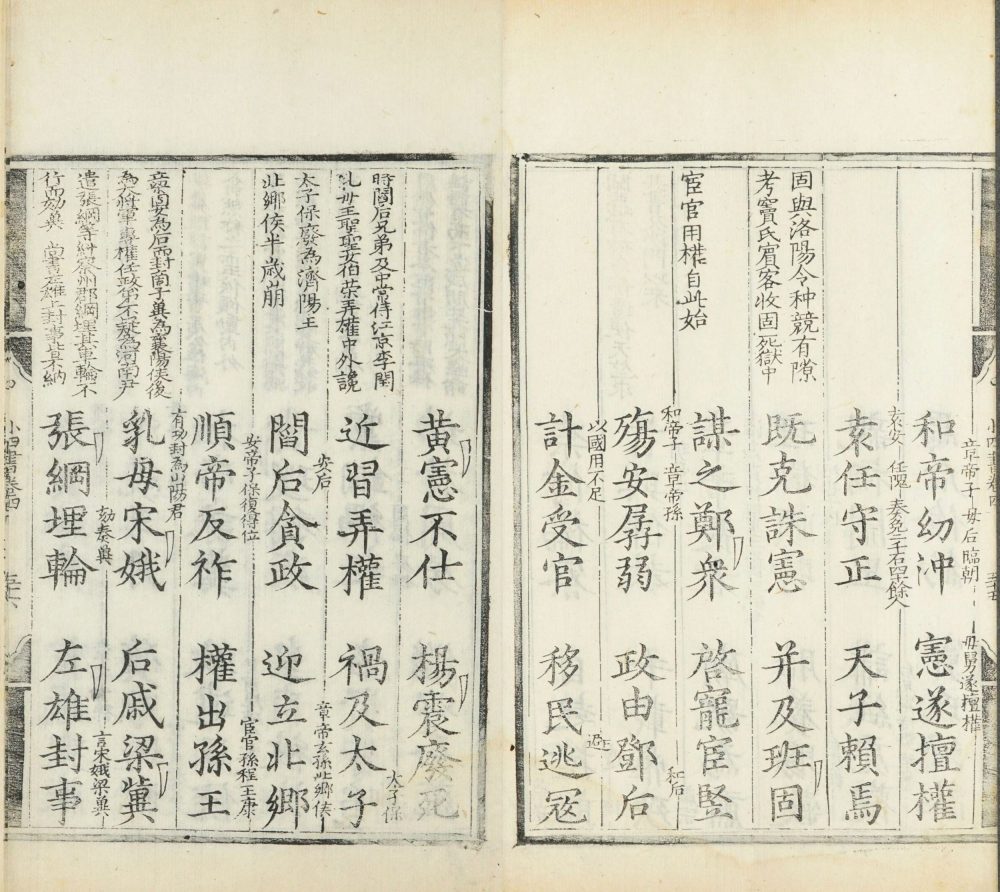 母舅遂擅權
和帝幼沖 憲遂擅權
章帝子 母后臨朝
袁任守正 天子賴焉
袁安 任隗 奏免二千石四十餘人
固與洛陽令种競有隙
考竇氏賓客收固死獄中
既克誅憲 并及班固
宦官用權自此始
謀之鄭衆 啓寵宦竪
和帝子 章帝孫
殤安孱弱 政由鄧后
和后
以國用不足
計金受官 移民逃寇
黃憲不仕 楊震廢死
時閻后兄弟及中常侍江京李閏
乳母王聖聖女伯榮弄權中外讒
近習弄權 禍及太子
太子保
太子保廢為濟陽王
北鄉侯半歲崩
安后
閻后貪政 迎立北鄉
章帝玄孫北鄉侯
安帝子保復得位
順帝反祚 權出孫王
宦官孫程王康
有功封為山陽君
立梁商女為后而封商子冀為襄陽侯後
為大將軍專權任政弟不疑為河南尹
乳母宋娥 后戚梁冀
遣張綱等糾察州郡綱埋其車輪不
行而劾冀 尚書左雄上封事皆不納
劾奏冀
張綱埋輪 左雄封事
言宋娥梁冀